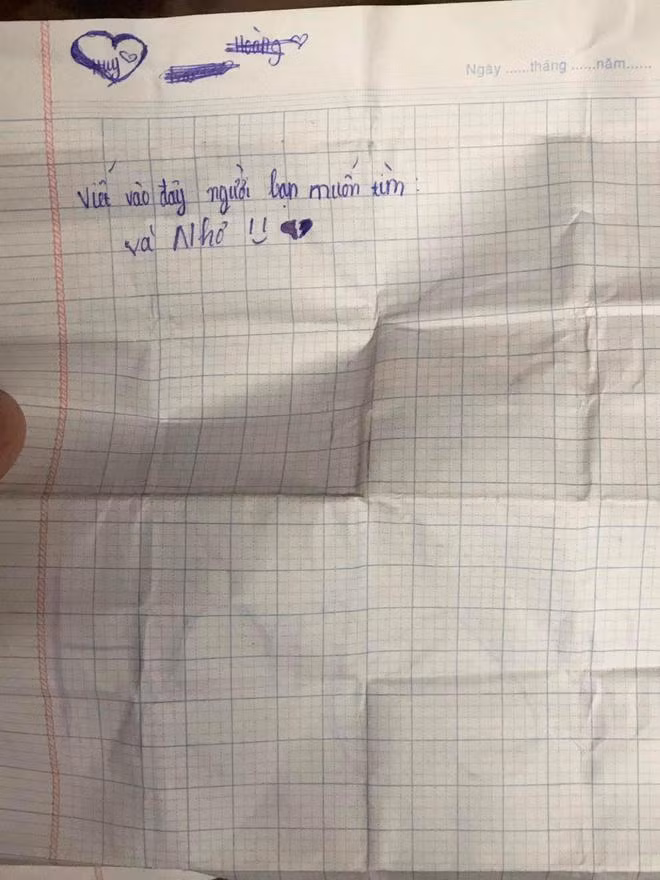 Huy
Hoàng
Ngày ......tháng ......năm......
Viết vào đây người bạn muốn tìm :
và Nhớ !!